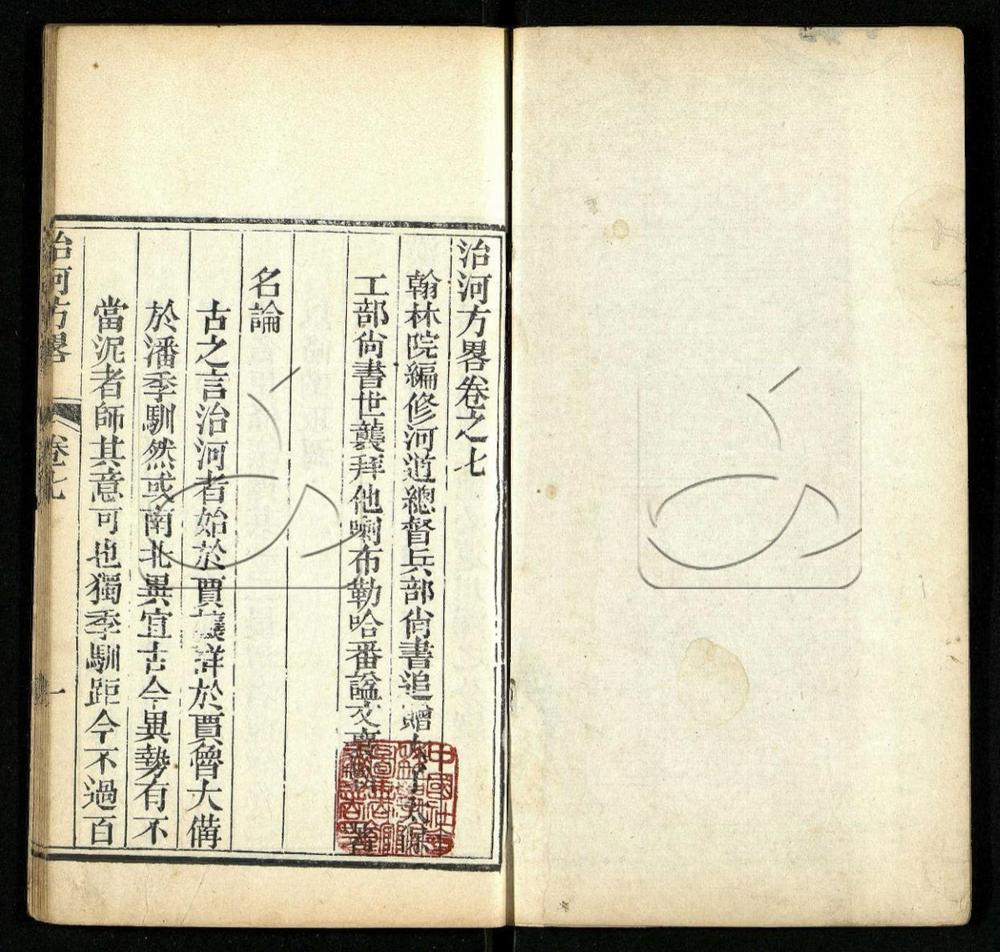 治河方畧卷之七
翰林院編修河道總督兵部尙書追贈太子太保
工部尙書世襲拜他喇布勒哈番諡文襄 著
名論
古之言治河者始於賈讓詳於賈魯大備
於潘季馴然或南北異宜古今異勢有不
當泥者師其意可也獨季馴距今不過百
治河方畧 卷七 一